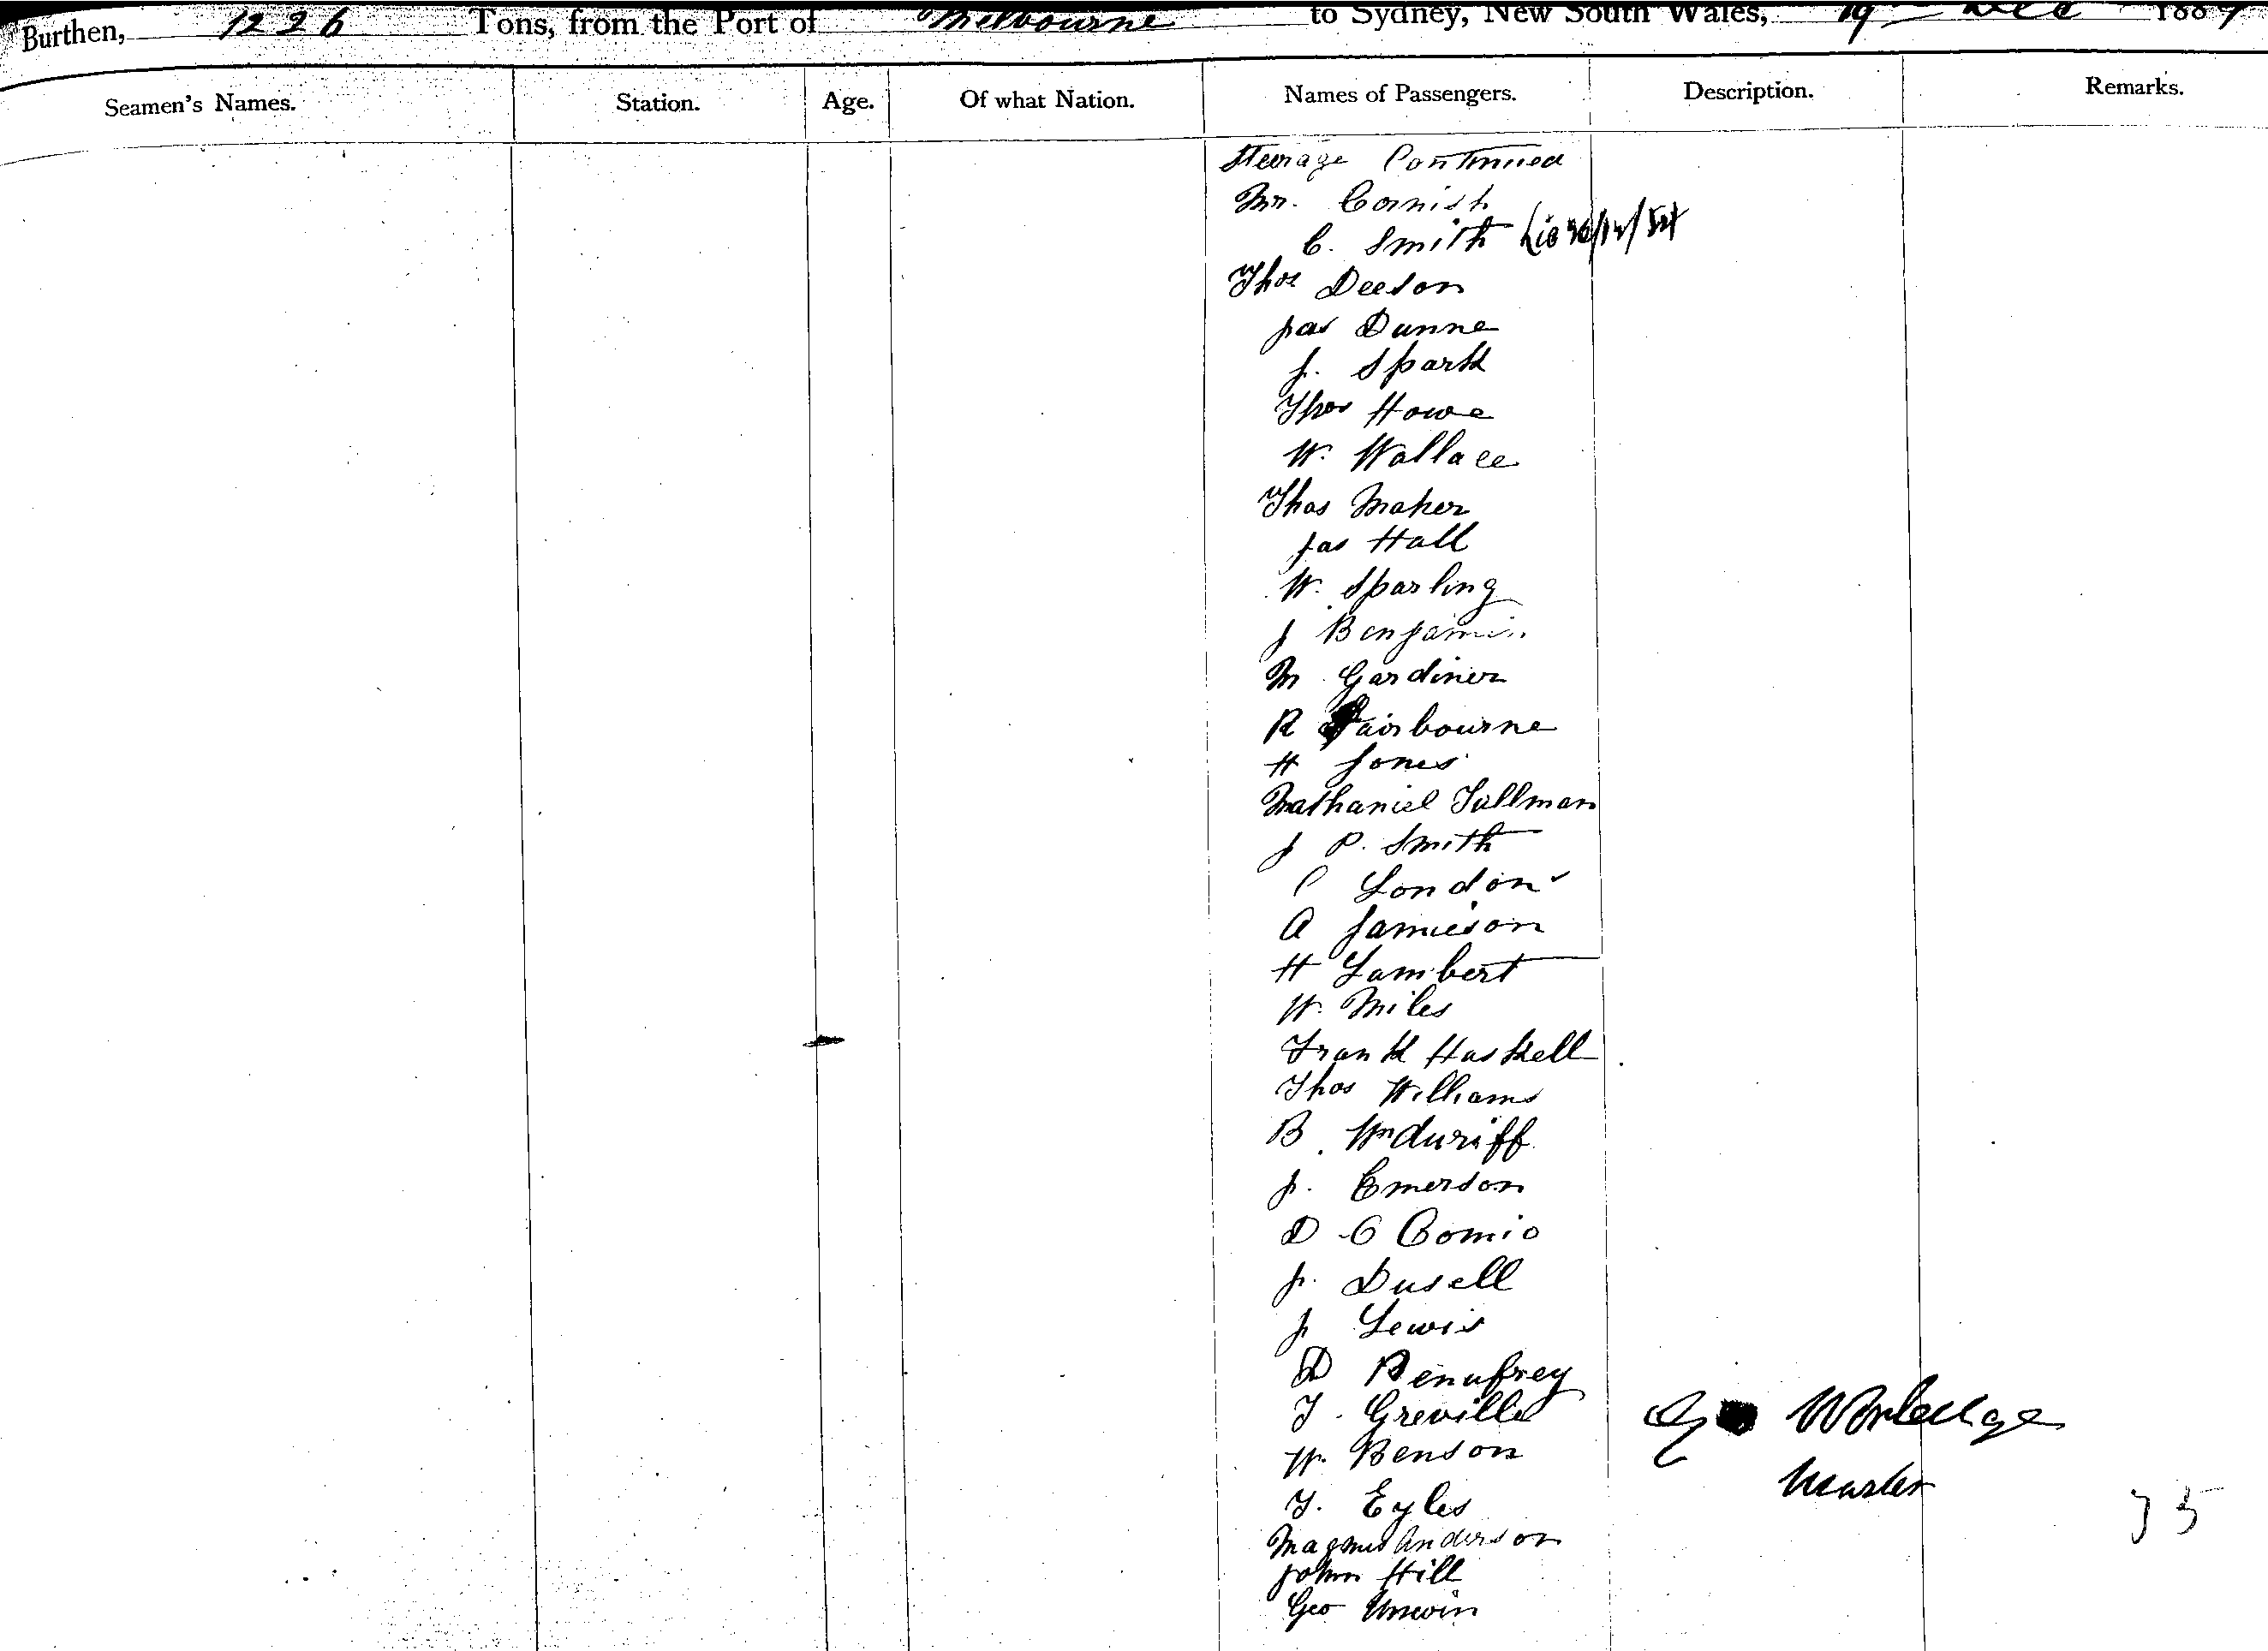 Burthen, 1226 Tons, from the Port of Melbourne to Sydney, New South Wales, 19th Dec 188
Seamen's Names. Station. Age. Of what Nation. Names of Passengers. Description. Remarks.
Steerage Continued
Mr. Cornish
C. Smith
Thos Deeson
Jas Dunne
J. Spark
Thos Howe
W. Wallace
Thos Maher
Jas Hall
W. Sparling
J Benjamin
M Gardiner
R Fairbourne
H Jones
Nathaniel Tullman
J P. Smith
C London
A Jamieson
H Lambert
W. Miles
Frank Haskell
Thos Williams
B
J. Emerson
D C Comio
J. Dusell
J Lewis
D
T. Greville
W. Benson
T. Eyles
Magnus Anderson
John Hill
Geo Unwin
Worledge
Master
35